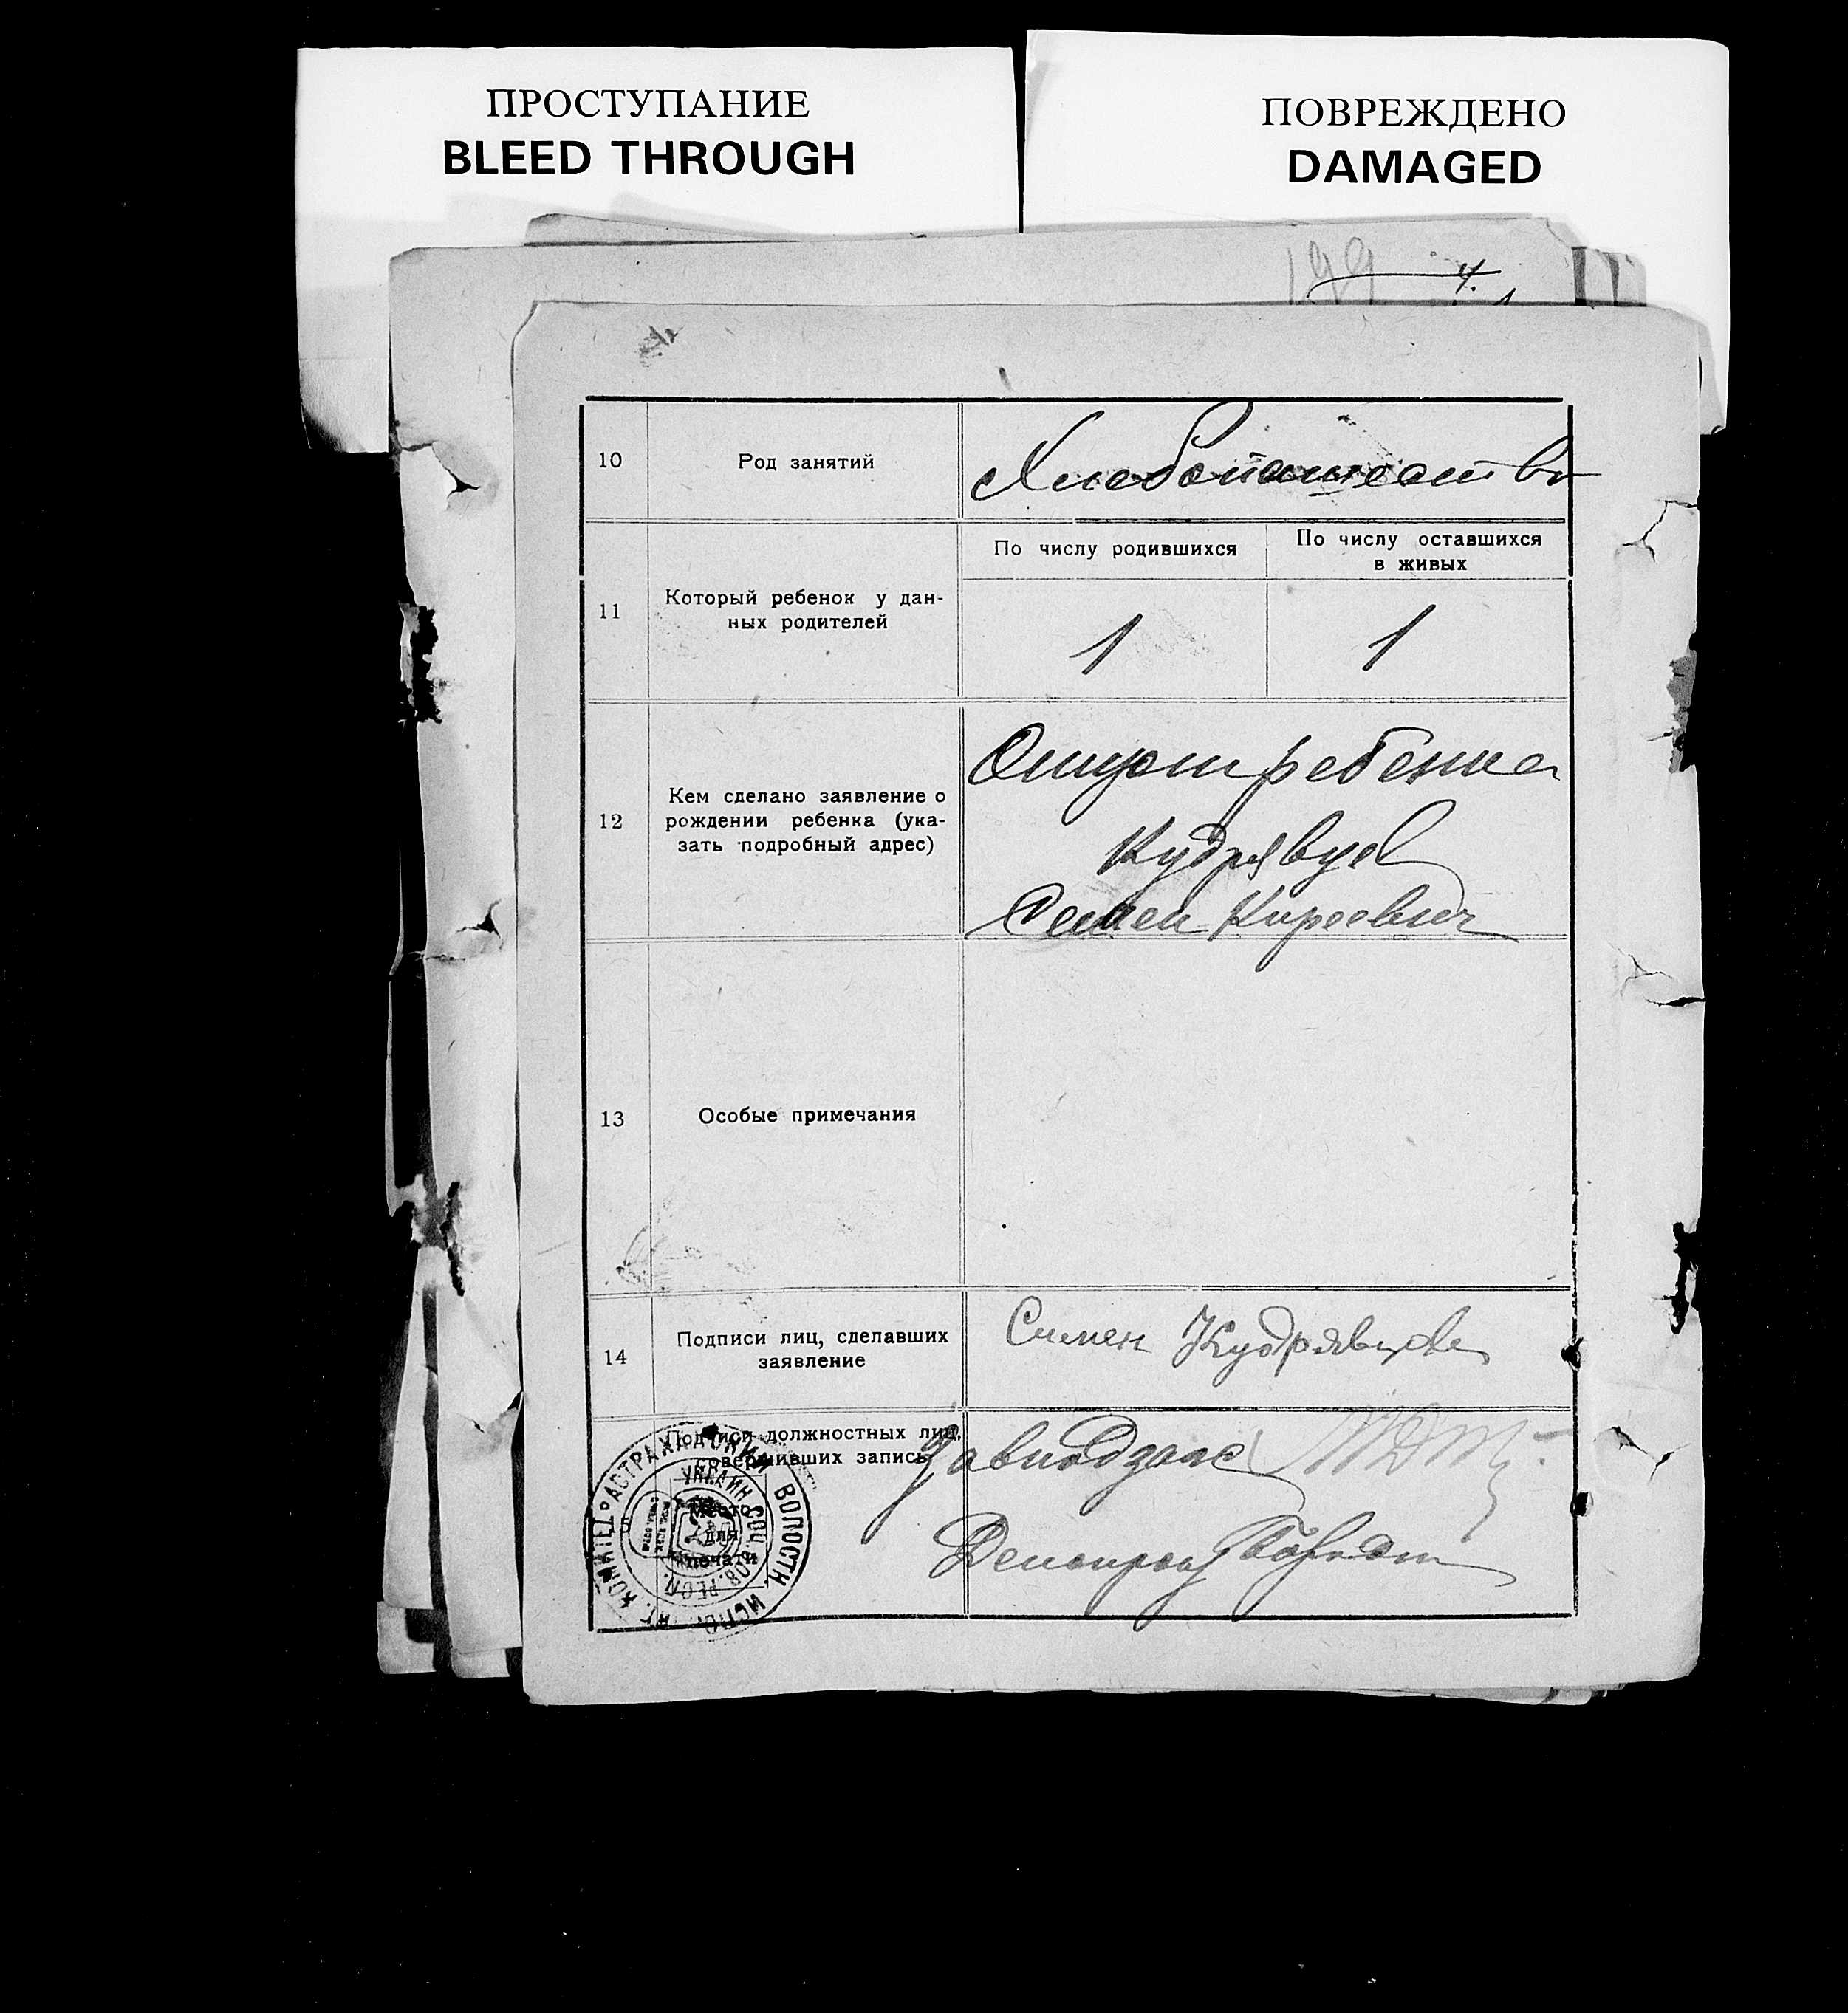 ПРОСТУПАНИЕ
BLEED THROUGH
ПОВРЕЖДЕНО
DAMAGED
199
4.
10
Род занятий
Хлебопашество
11
Который ребенок у дан-
ных родителей
По числу родившихся
По числу оставшихся
в живых
1
1
12
Кем сделано заявление о
рождении ребенка (ука-
зать подробный адрес)
Отцом ребенка
Кудрявцев
Семен Киреевич
13
Особые примечания
14
Подписи лиц, сделавших
заявление
Симен Кудрявцев
Подписи должностных лиц,
совершивших запись
Завподзагс
Делопроиз
Место
для
печати
АСТРАХАНСКИЙ ВОЛОСТН. ИСПОЛНИТ. КОМИТЕТ
УКРАИН. СОЦ. СОВ. РЕСП.